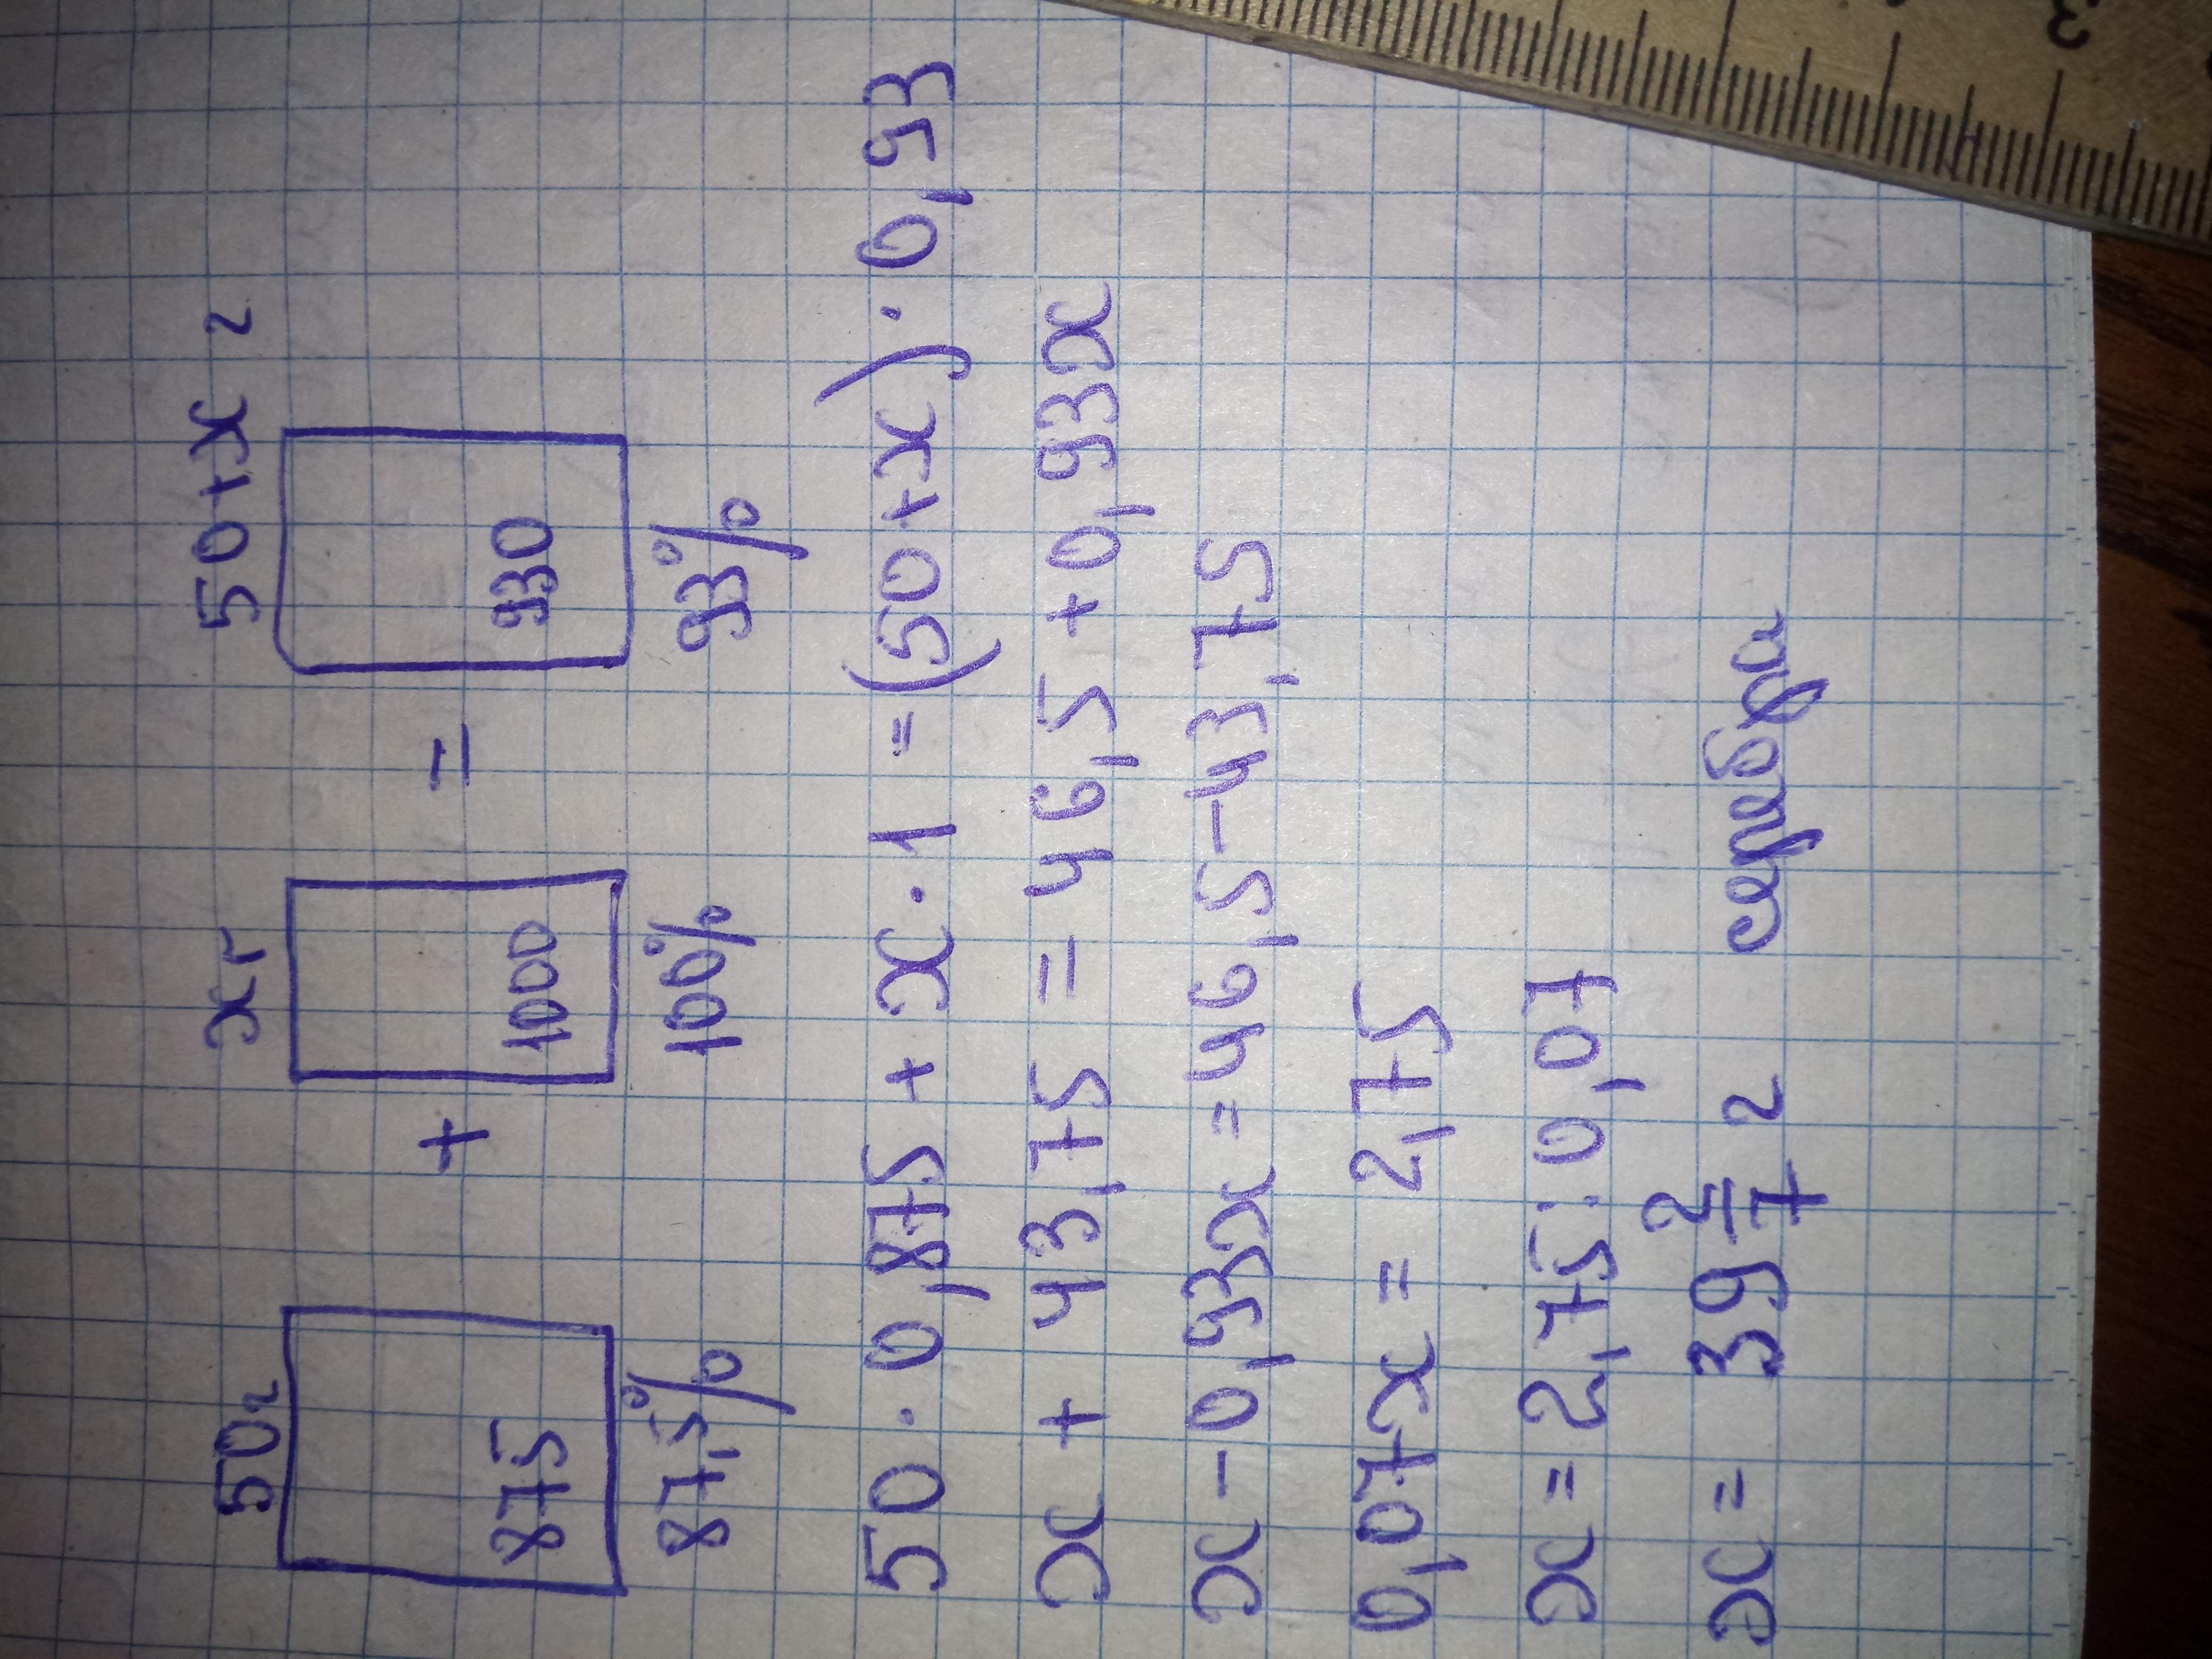 50г xг 50+x г
875 + 1000 = 930
87,5% 100% 93%
50 · 0,875 + x · 1 = (50+x) · 0,93
x + 43,75 = 46,5 + 0,93x
x - 0,93x = 46,5 - 43,75
0,07x = 2,75
x = 2,75 : 0,07
x = 39 2/7 г серебра
3